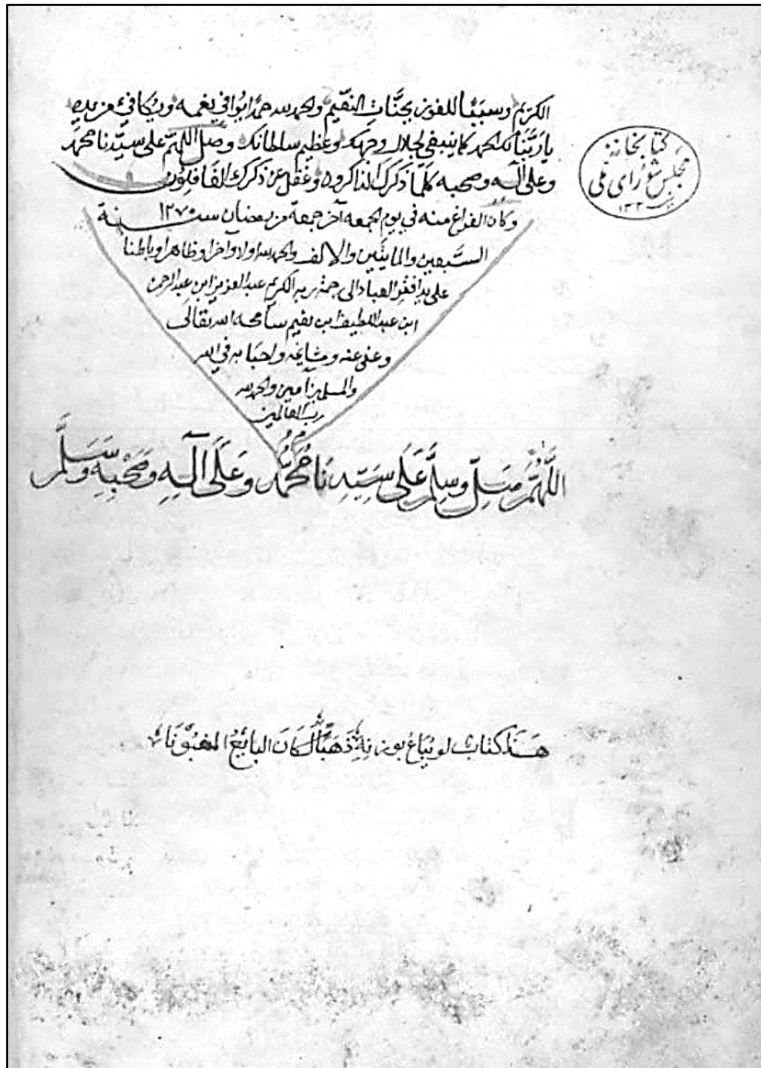 الكريم وسببا للفوز بجنات النعيم والحمد لله حمدا يوافي نعمه ويكافئ مزيده
يا ربنا لك الحمد كما ينبغي لجلال وجهك وعظيم سلطانك وصل اللهم على سيدنا محمد
وعلى آله وصحبه كلما ذكرك الذاكرون وغفل عن ذكرك الغافلون
وكان الفراغ منه في يوم الجمعه آخر جمعة من رمضان سنة ١٢٧٠
السبعين والمايتين والالف والحمد لله اولا وآخرا وظاهرا وباطنا
على يد افقر العباد الى رحمة ربه الكريم عبد العزيز ابن عبد الرحمن
ابن عبد اللطيف ابن نعيم سامحه الله تعالى
وعفى عنه ومشايخه واحبابه في الله
والمسلمين آمين والحمد لله
رب العالمين
اللهم صل وسلم على سيدنا محمد وعلى آله وصحبه وسلم
هذا كتاب لو يباع بوزنه ذهبا لكان البائع المغبونا
كتابخانه
مجلس شورای ملی